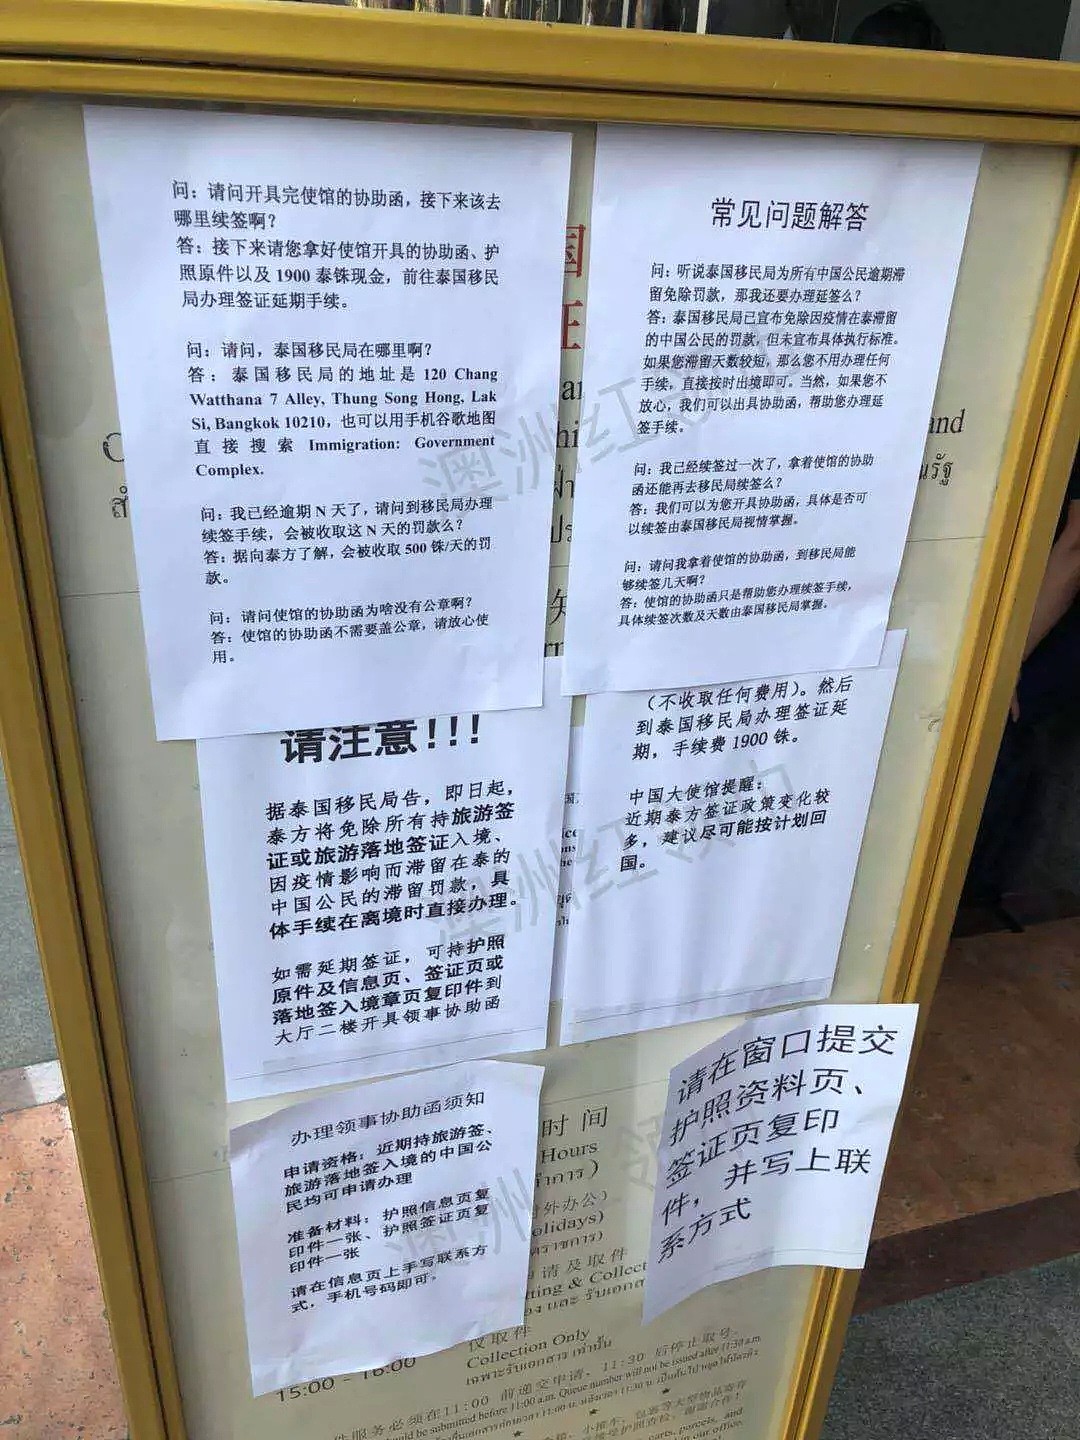 问：请问开具完使馆的协助函，接下来该去
哪里续签啊？
答：接下来请您拿好使馆开具的协助函、护
照原件以及 1900 泰铢现金，前往泰国移民
局办理签证延期手续。
问：请问，泰国移民局在哪里啊？
答：泰国移民局的地址是 120 Chang
Watthana 7 Alley, Thung Song Hong, Lak
Si, Bangkok 10210，也可以用手机谷歌地图
直接搜索 Immigration: Government
Complex.
问：我已经逾期 N 天了，请问到移民局办理
续签手续，会被收取这 N 天的罚款么？
答：据向泰方了解，会被收取 500 铢/天的罚
款。
问：请问使馆的协助函为啥没有公章啊？
答：使馆的协助函不需要盖公章，请放心使
用。
常见问题解答
问：听说泰国移民局为所有中国公民逾期滞
留免除罚款，那我还要办理延签么？
答：泰国移民局已宣布免除因疫情在泰滞留
的中国公民的罚款，但未宣布具体执行标准。
如果您滞留天数较短，那么您不用办理任何
手续，直接按时出境即可。当然，如果您不
放心，我们可以出具协助函，帮助您办理延
签手续。
问：我已经续签过一次了，拿着使馆的协助
函还能再去移民局续签么？
答：我们可以为您开具协助函，具体是否可
以续签由泰国移民局视情掌握。
问：请问我拿着使馆的协助函，到移民局能
够续签几天啊？
答：使馆的协助函只是帮助您办理续签手续，
具体续签次数及天数由泰国移民局掌握。
请注意！！！
据泰国移民局告，即日起，
泰方将免除所有持旅游签
证或旅游落地签证入境、
因疫情影响而滞留在泰的
中国公民的滞留罚款，具
体手续在离境时直接办理。
如需延期签证，可持护照
原件及信息页、签证页或
落地签入境章页复印件到
大厅二楼开具领事协助函
（不收取任何费用）。然后
到泰国移民局办理签证延
期，手续费 1900 铢。
中国大使馆提醒：
近期泰方签证政策变化较
多，建议尽可能按计划回
国。
办理领事协助函须知
申请资格：近期持旅游签、
旅游落地签入境的中国公
民均可申请办理
准备材料：护照信息页复
印件一张、护照签证页复
印件一张
请在信息页上手写联系方
式，手机号码即可。
请在窗口提交
护照资料页、
签证页复印
件，并写上联
系方式
国
证
and
知
时间
Hours
对外办公）
olidays)
申请及取件
tting & Collect
仅取件
Collection Only
15:00 - 16:00
เฉพาะรับเอกสารเท่านั้น
件服务必须在11:00 前递交申请，11:30 后停止取号。
ould be submitted before 11:00 a.m. Queue number will not be issued after 11:30 a.m.
小推车、包裹等大型物品寄存
carts, parcels, and
in our office.
澳洲红领巾
澳洲红领巾
澳洲红领巾